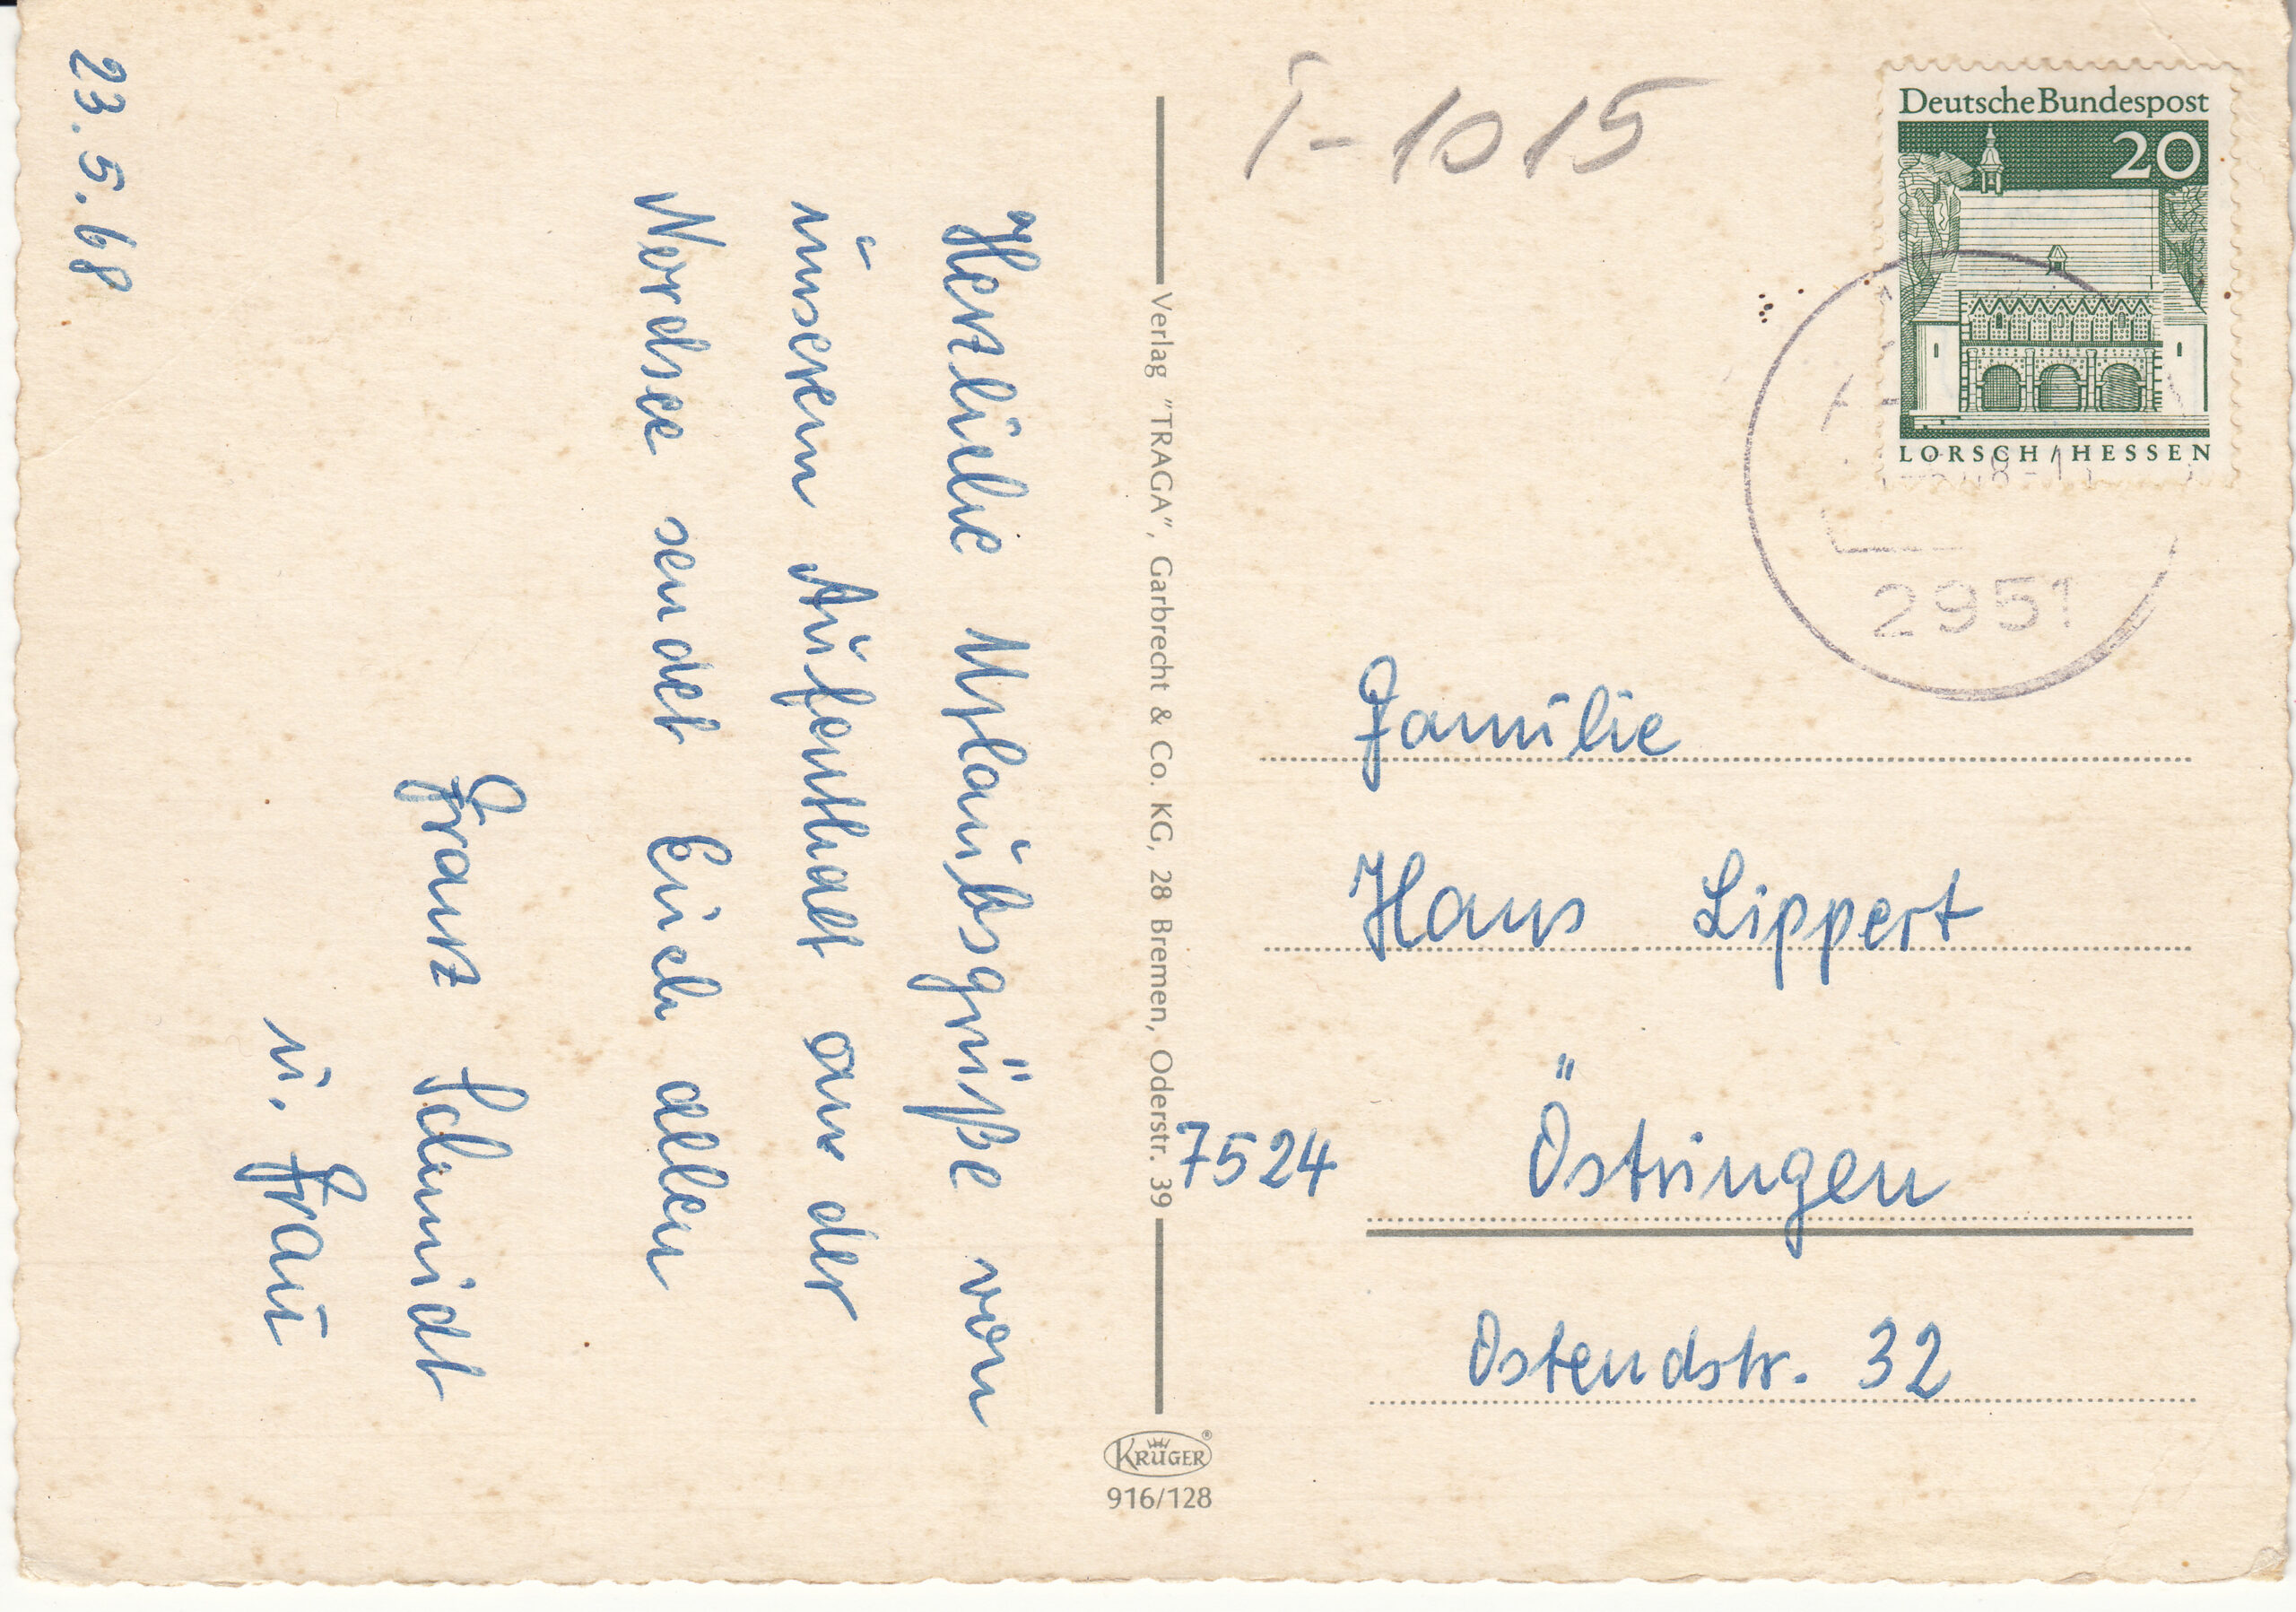 23.5.68
Herzliche Urlaubsgrüße von
unserem Aufenthalt an der
Nordsee sendet Euch allen
Franz Schmidt
u. Frau
Verlag "TRAGA", Garbrecht & Co. KG, 28 Bremen, Oderstr. 39
KRÜGER®
916/128
I-1015
Deutsche Bundespost
20
LORSCH/HESSEN
2951
Familie
Hans Lippert
7524 Östringen
Ostendstr. 32